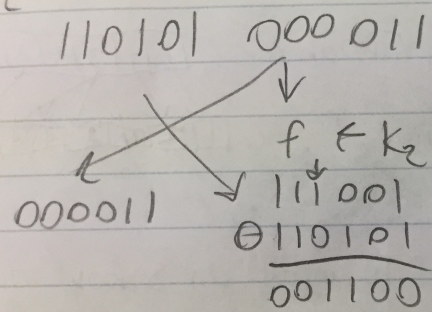 110101 000011
f ← K₂
000011 111001
⊖110101
001100